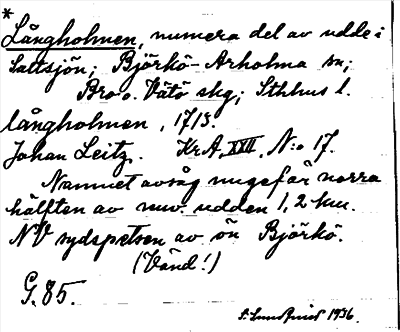 *
Långholmen, numera del av udde i
Saltsjön; Björkö-Arholma sn;
Bro o. Vätö skg; Sthhus l.
långholmen, 1713.
Johan Leitz. KrA, XXII, N:o 17.
Namnet avsåg ungefär norra
hälften av nuv. udden 1,2 km.
NV sydspetsen av ön Björkö.
(Vänd!)
G. 85.
1936.